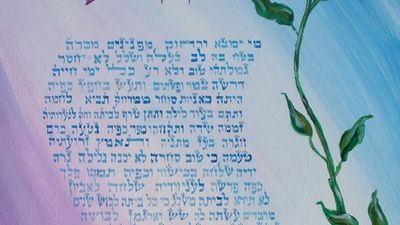 מי ימצא ורחוק מפנינים מכרה
בטח בה לב בעלה ושלל לא יחסר
גמלתהו טוב ולא רע כל ימי חייה
דרשה צמר ופשתים ותעש בחפץ כפיה
היתה כאניות סוחר ממרחק תביא לחמה
ותקם בעוד לילה ותתן טרף לביתה וחק לנערתיה
זממה שדה ותקחהו מפרי כפיה נטעה כרם
חגרה בעוז מתניה ותאמץ זרועתיה
טעמה כי טוב סחרה לא יכבה בלילה נרה
ידיה שלחה בכישור וכפיה תמכו פלך
כפה פרשה לעני וידיה שלחה לאביון
לא תירא לביתה משלג כי כל ביתה לבוש שנים
מרבדים עשתה לה שש וארגמן לבושה